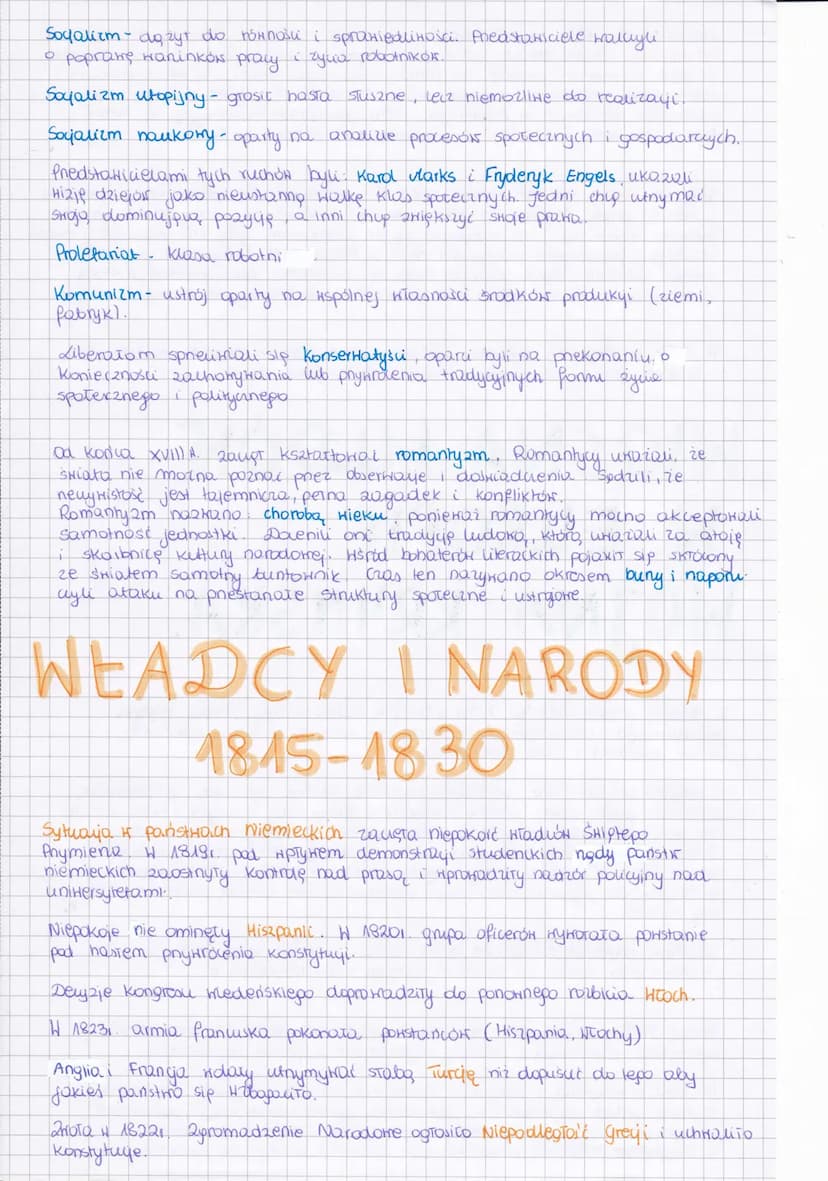 Socjalizm - dążył do równości i sprawiedliwości. Przedstawiciele walczyli
o poprawę warunków pracy i życia robotników.
Socjalizm utopijny - głosił hasła słuszne, lecz niemożliwe do realizacji.
Socjalizm naukowy - oparty na analizie procesów społecznych i gospodarczych.
Przedstawicielami tych ruchów byli: Karol Marks i Fryderyk Engels, ukazali
wizję dziejów jako nieustanną walkę klas społecznych. Jedni chcą utrzymać
swoją dominującą pozycję, a inni chcą zwiększyć swoje prawa.
Proletariat - klasa robotni
Komunizm - ustrój oparty na wspólnej własności środków produkcji (ziemi,
fabryk).
Liberałom sprzeciwiali się konserwatyści, oparci byli na przekonaniu, o
konieczności zachowywania lub przywrócenia tradycyjnych form życia
społecznego i politycznego
Od końca XVIII w. zaczął kształtować romantyzm. Romantycy uważali, że
świata nie można poznać przez obserwacje i doświadczenia. Sądzili, że
rzeczywistość jest tajemnicza, pełna zagadek i konfliktów.
Romantyzm nazwano: chorobą wieku, ponieważ romantycy mocno akceptowali
samotność jednostki. Docenili oni tradycję ludową, którą uważali za ostoję
i skarbnicę kultury narodowej. Wśród bohaterów literackich pojawił się skłócony
ze światem samotny buntownik. Czas ten nazywano okresem burzy i naporu
czyli ataku na przestarzałe struktury społeczne i ustrojowe.
WŁADCY I NARODY
1815-1830
Sytuacja w państwach niemieckich zaczęła niepokoić władców Świętego
Przymierza. W 1819r. pod wpływem demonstracji studenckich rządy państw
niemieckich zaostrzyły kontrolę nad prasą i wprowadziły nadzór policyjny nad
uniwersytetami.
Niepokoje nie ominęły Hiszpanii. W 1820r. grupa oficerów wywołała powstanie
pod hasłem przywrócenia konstytucji.
Decyzje kongresu wiedeńskiego doprowadziły do ponownego rozbicia Włoch.
W 1823r. armia francuska pokonała powstańców (Hiszpania, Włochy)
Anglia i Francja wolały utrzymywać słabą Turcję niż dopuścić do tego aby
jakieś państwo się wzbogaciło.
Zwoła w 1822r. Zgromadzenie Narodowe ogłosiło Niepodległość Grecji i uchwaliło
konstytucje.